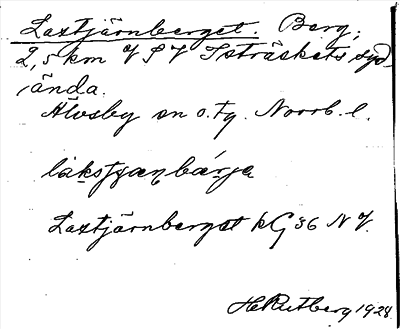 Laxtjärnberget. Berg,
2,5 km VSV Isträskets syd-
ända.
Älvsby sn o. tg. Norrb. l.
Laxtjärnberget kG 36 NV.
H Rutberg 1928